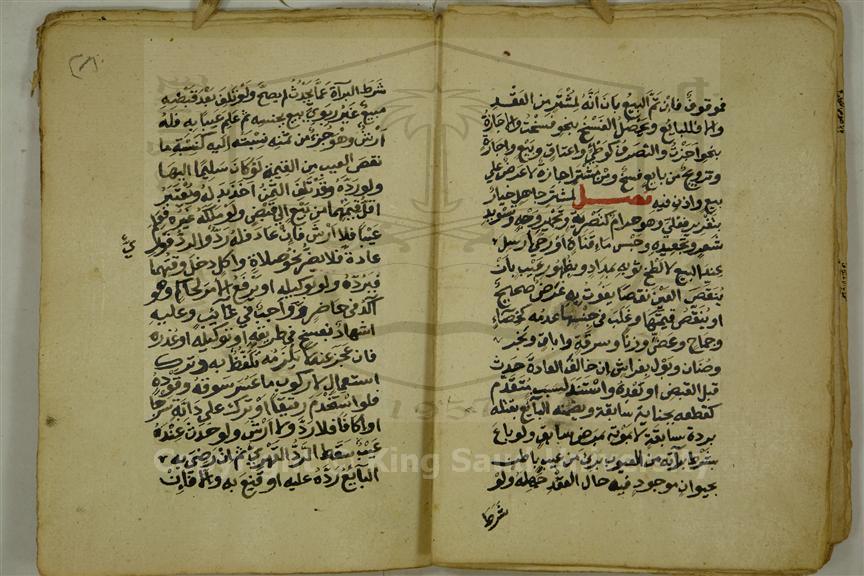 فموقوف فان تم البيع بان انه لمشتر من العقد
والا فللبائع ويحصل الفسخ بنحو فسخت والاجازة
بنحو اجزت والتصرف كوطئ واعتاق وبيع واجارة
وتزويج من بائع فسخ ومن مشتر اجازة لا عرض على
بيع واذن فيه فصل لمشتر جاهل خيار
بتغرير فعلي وهو حرام كتصرية وتحمير وجه وتسويد
شعر وتجعيده وحبس ماء قناة او رحى ارسل
عند البيع لا لطخ ثوبه بمداد وبظهور عيب باق
ينقص العين نقصا يفوت به غرض صحيح
او ينقص قيمتها وغلب في جنسها عدمه كخصاء
وجماح وعض وزنا وسرقة واباق وبخر
وصنان وبول بفراش ان خالف العادة حدث
قبل القبض او بعده واستند لسبب متقدم
كقطعه بجناية سابقة ويضمنه البائع بقتله
بردة سابقة لا بموته بمرض سابق ولو باع
بشرط براءته من العيوب برئ من عيب باطن
بحيوان موجود فيه حال العقد جهله ولو
شرط
شرط البراءة عما يحدث لم يصح ولو تلف بعد قبضه
مبيع غير ربوي بيع بجنسه ثم علم عيبا به فله
ارش وهو جزء من ثمنه نسبته اليه كنسبة ما
نقص العيب من القيمة لو كان سليما اليها
ولو رده وقد تلف الثمن اخذ بدله ويعتبر
اقل قيمتهما من بيع الى قبض ولو ملكه غيره فعلم
عيبا فلا ارش فان عاد فله رد والرد فوري
عادة فلا يضر نحو صلاة واكل دخل وقتهما
فيرده ولو بوكيله او يرفع الامر لحاكم وهو
آكد في حاضر وواجب في غائب وعليه
اشهاد بفسخ في طريقه او توكيله او عذره
فان عجز عنه لم يلزمه تلفظ به وترك
استعمال لا ركوب ما عسر سوقه وقوده
فلو استخدم رقيقا او ترك على دابة سرجا
او اكافا فلا رد ولا ارش ولو حدث عنده
عيب سقط الرد القهري ثم ان رضي به
البائع رده عليه او قنع به والا فان